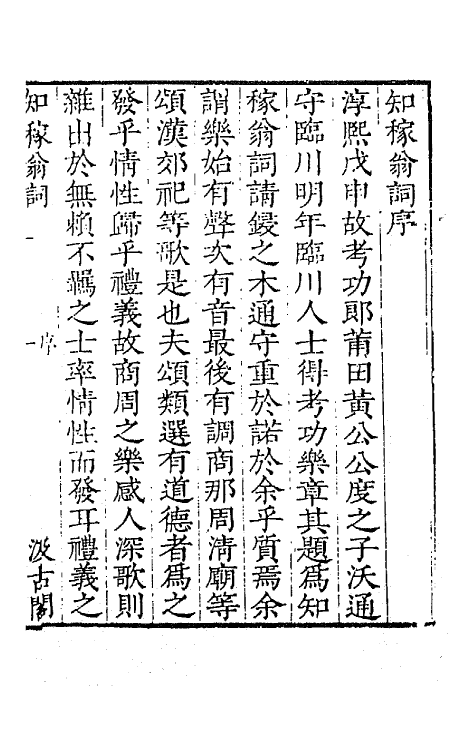 知稼翁詞序
淳熙戊申故考功郎莆田黃公公度之子沃通
守臨川明年臨川人士得考功樂章其題爲知
稼翁詞請鋟之木通守重於諾於余乎質焉余
謂樂始有聲次有音最後有調商那周清廟等
頌漢郊祀等歌是也夫頌類選有道德者爲之
發乎情性歸乎禮義故商周之樂感人深歌則
雜出於無賴不羈之士率情性而發耳禮義之
知稼翁詞 序 一 汲古閣